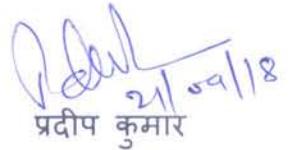 21/09/18
प्रदीप कुमार